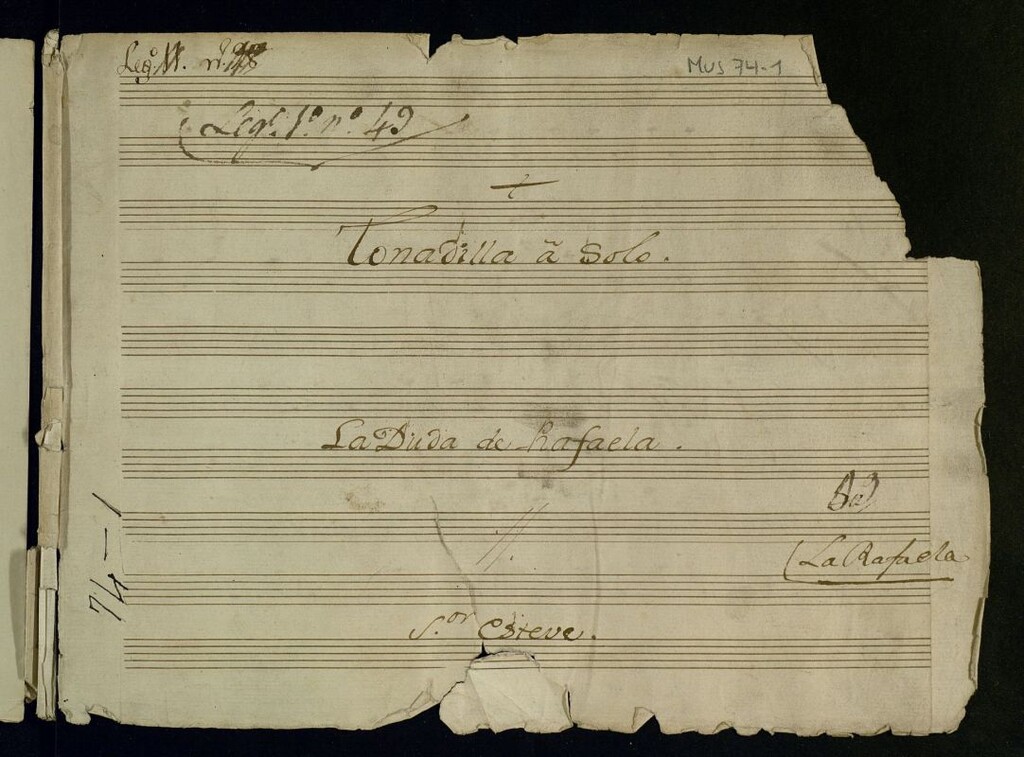 Leg.º nº
MUS 74-1
Leg.º 1º nº 49
+
Tonadilla â Solo.
La Duda de Rafaela.
La Rafaela
S.or Esteve.
74-1